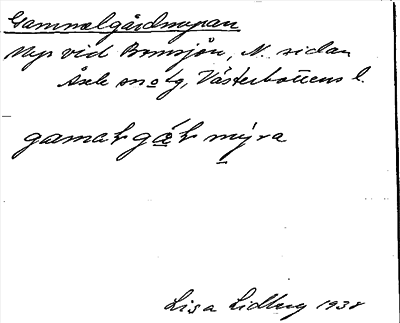 Gammalgårdmyran
Myr vid Bomsjön, N. sidan
Åsele sn o tg, Västerbottens l.
gamalgælmýra
Lisa Lidberg 1938